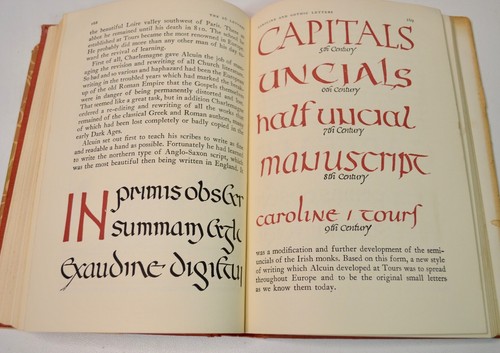 the beautiful Loire valley southwest of Paris. There
abbot he remained until his death in 810. The school he
established at Tours became the most renowned in
He probably did more than any other man of his day
ward the revival of learning.
First of all, Charlemagne gave Alcuin the job of
aging the revision and rewriting of all Church
So bad and so various and haphazard had been the
writing in the troubled years which had marked the
up of the old Roman Empire that the Gospels
were in danger of being permanently distorted and
That seemed like a great task, but in addition
ordered a re-editing and rewriting of all the works that
remained of the classical Greek and Roman authors,
of which had been lost completely or badly copied in the
early Dark Ages.
Alcuin set out first to teach his scribes to write as
and readable a hand as possible. Fortunately he had learned
to write the northern type of Anglo-Saxon script, which
was the most beautiful then being written in England. It
IN primis obs
summam
Exaudire
ROMAN AND GOTHIC LETTERS
CAPITALS
5th Century
UNCIALS
6th Century
half uncial
7th Century
manuscript
8th Century
caroline / tours
9th Century
was a modification and further development of the semi-
uncials of the Irish monks. Based on this form, a new style
of writing which Alcuin developed at Tours was to spread
throughout Europe and to be the original small letters
as we know them today.